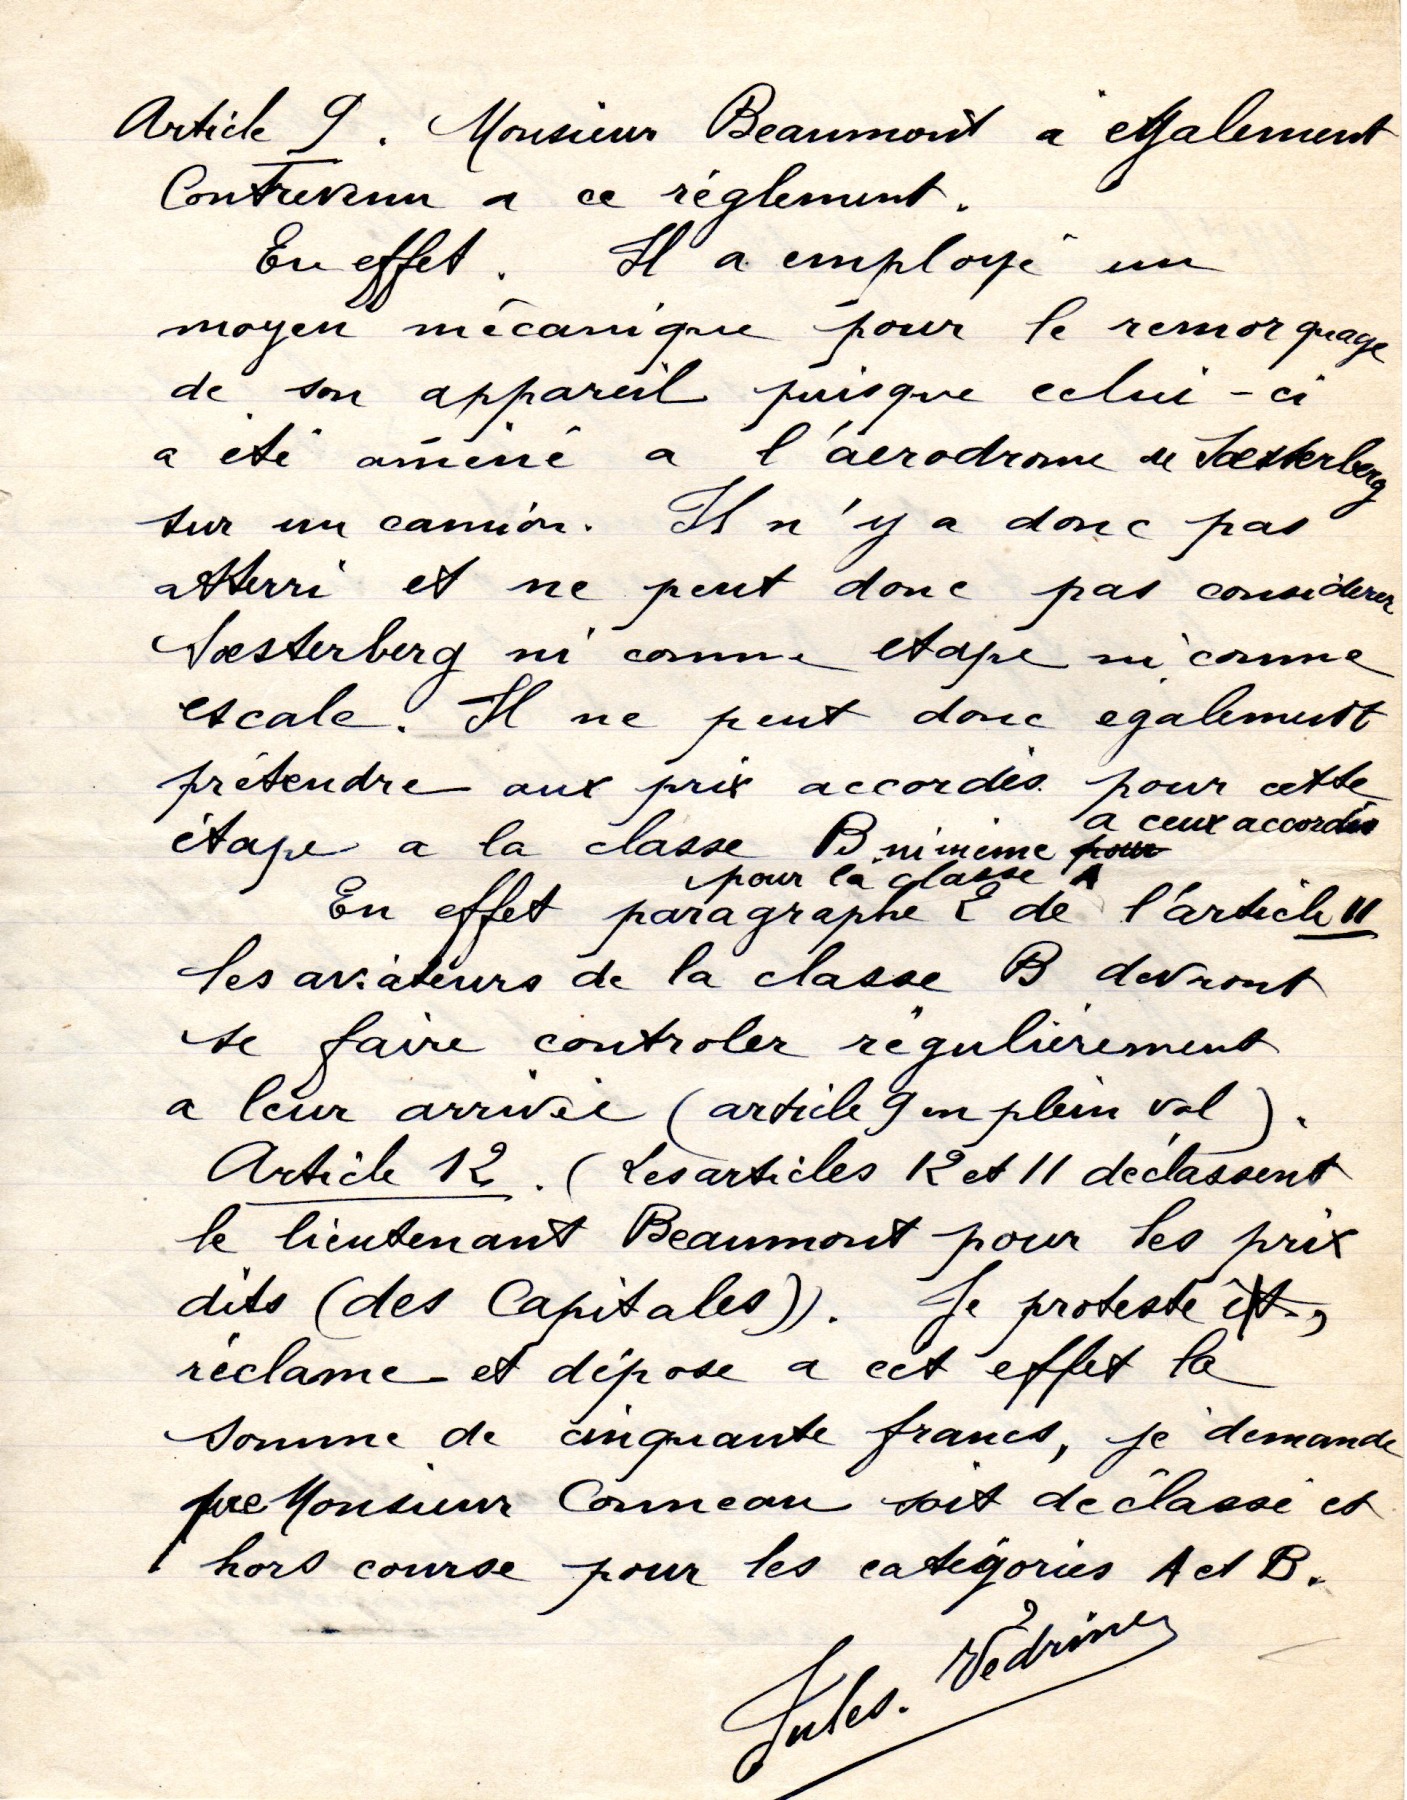 Article 9. Monsieur Beaumont a également
Contrevenu a ce réglement.
En effet. Il a employé un
moyen mécanique pour le remorquage
de son appareil puisque celui-ci
a été améné a l'aérodrome de Soesterberg
sur un camion. Il n'y a donc pas
atterri et ne peut donc pas considerer
Soesterberg ni comme etape ni comme
escale. Il ne peut donc également
prétendre aux prix accordés pour cette
étape a la classe B ni même pour a ceux accordés
pour la classe A
En effet paragraphe E de l'article 11
les aviateurs de la classe B devront
se faire controler régulièrement
a leur arrivée (article 9 en plein vol).
Article 12. (Les articles 12 et 11 déclassent
le lieutenant Beaumont pour les prix
dits (des Capitales)). Je proteste et,
réclame et dépose a cet effet la
somme de cinquante francs, je demande
que Monsieur Conneau soit déclassé et
hors course pour les catégories A et B.
Jules. Védrines